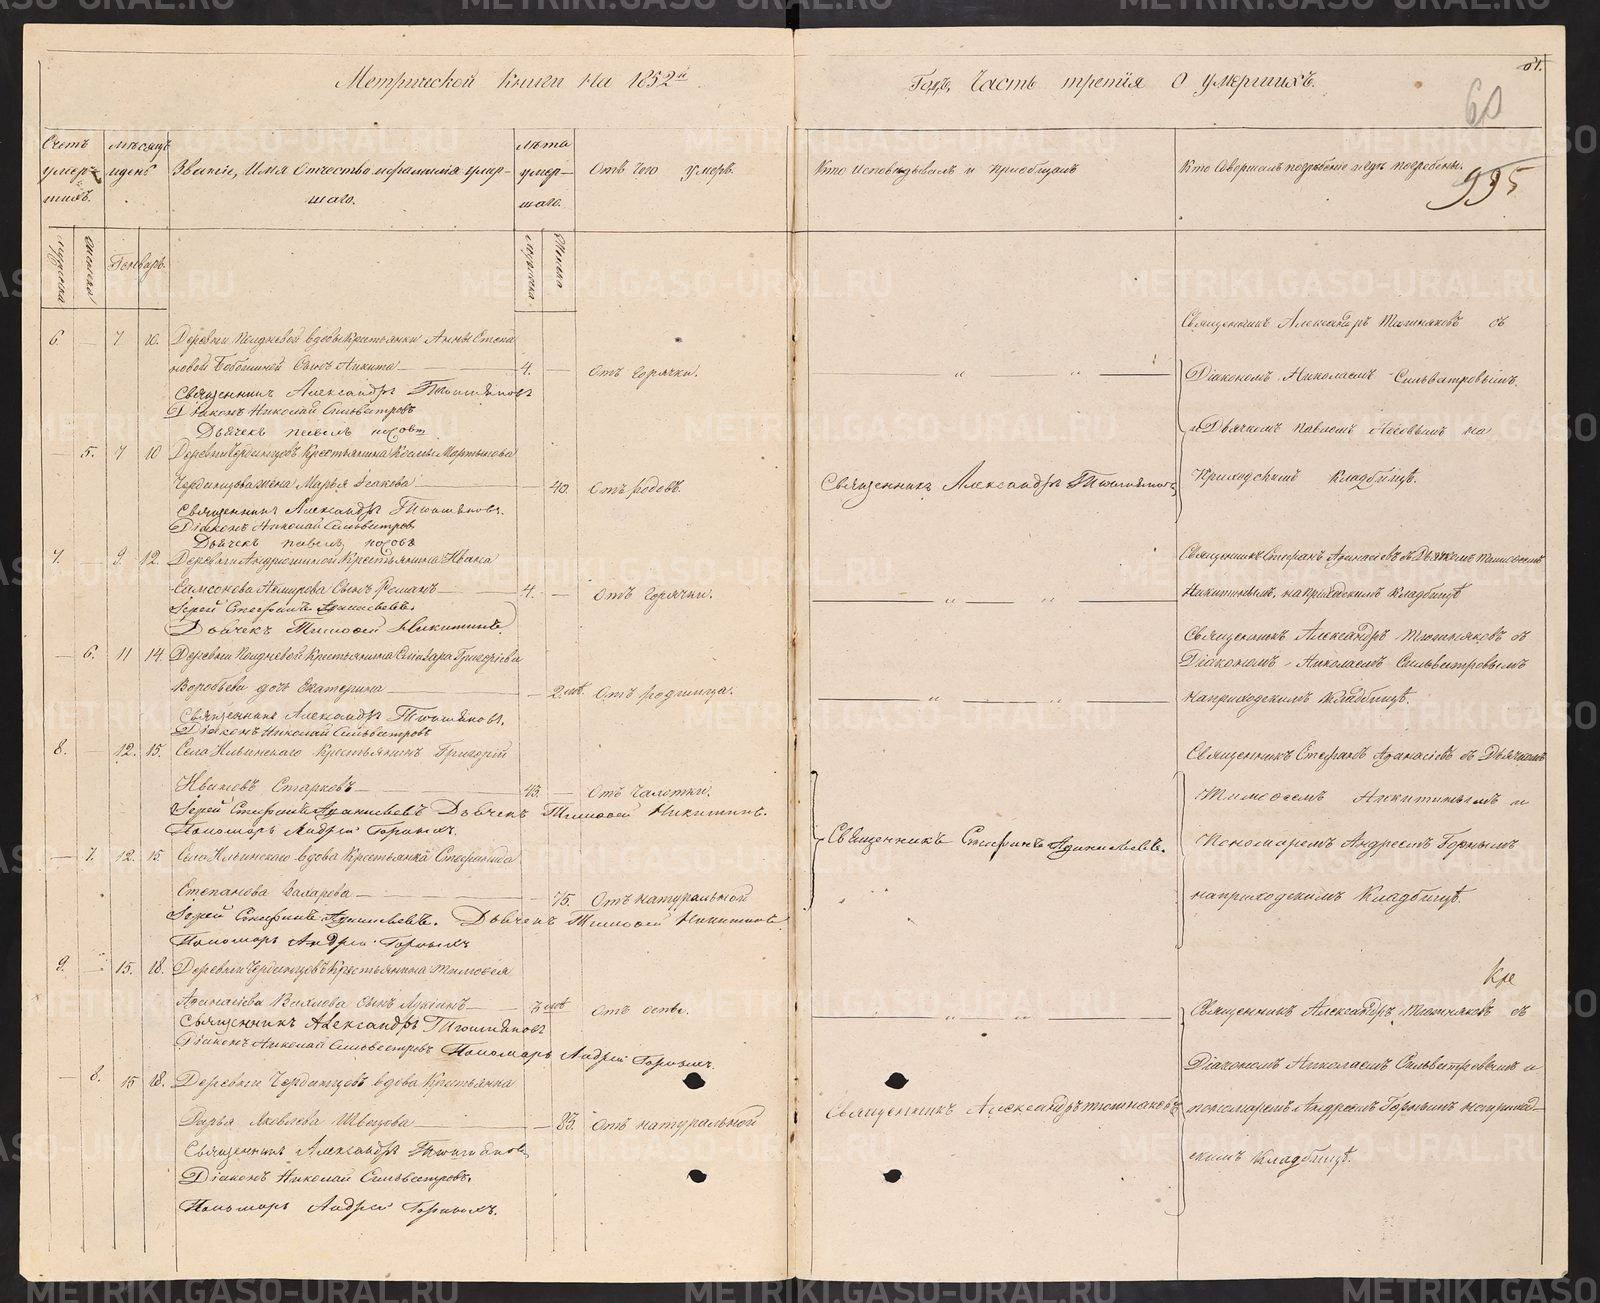 Метрической книги на 1852й
Годъ, Часть третія о умершихъ.
60
995
Счетъ умер-шихъ.
мѣсяцъ и день
Званіе, Имя Отчество и фамилія умер-
шаго.
лѣта умер-шаго.
Отъ чего умеръ.
Кто исповѣдывалъ и приобщалъ
Кто совершалъ погребеніе и гдѣ погребены.
мужеска
женска
Генварь.
мужеска
женска
6 — 7 10. Деревни Полдневой вдовы Крестьянки Анны Степа
новой Бобошиной Сынъ Никита — 4. — Отъ горячки.
Священникъ Александръ Тюшняковъ
Діаконъ Николай Сильвестровъ
Дьячекъ павелъ носовъ
Священникъ Александръ Тюшняковъ съ
Діакономъ Николаемъ Сильвестровымъ
и Дьячкомъ павломъ Носовымъ на
Приходскомъ кладбищѣ.
— 5. 7 10 Деревни Чердынцовъ Крестьянина Козмы Мартынова
Чердынцова жена Марья Исакова — 40. Отъ родовъ.
Священникъ Александръ Тюшняковъ
Священникъ Александръ Тюшняковъ.
Діаконъ Николай Сильвестровъ
Дьячекъ павелъ носовъ
7. — 9. 12. Деревни Андрюшиной Крестьянина Ивана
Самсонова сынъ Романъ — 4. — Отъ горячки.
Іерей Стефанъ Афанасьевъ.
Дьячекъ Тимофей Никитинъ.
Священникъ Стефанъ Афанасіевъ съ Дьячкомъ Тимофеемъ
Никитинымъ, на приходскомъ кладбищѣ
— 6. 11 14. Деревни Полдневой Крестьянина Елизара Григорьева
Воробьева дочь Екатерина — 2. Отъ родимца.
Священникъ Александръ Тюшняковъ.
Діаконъ Николай Сильвестровъ
Священникъ Александръ Тюшняковъ съ
Діакономъ Николаемъ Сильвестровымъ
на приходскомъ кладбищѣ.
8. — 12. 15. Села Ильинскаго Крестьянинъ Григорій
Ивановъ Старковъ — 43. — Отъ чахотки.
Іерей Стефанъ Афанасьевъ Дьячекъ Тимофей Никитинъ.
Пономарь Андрей Горныхъ.
Священникъ Стефанъ Афанасьевъ.
Священникъ Стефанъ Афанасіевъ съ Дьячкомъ
Тимофеемъ Никитинымъ и
Пономаремъ Андреемъ Горныхъ
на приходскомъ кладбищѣ.
— 7. 12. 15 Села Ильинскаго вдова Крестьянка Стефанида
Степанова Захарова — 75. Отъ натуральной
Іерей Стефанъ Афанасьевъ. Дьячекъ Тимофей Никитинъ
Пономарь Андрей Горныхъ
9. — 15. 18. Деревни Чердынцовъ Крестьянина Тимофея
Афанасіева сынъ Лукіанъ — Отъ оспы.
Священникъ Александръ Тюшняковъ
Діаконъ Николай Сильвестровъ Пономарь Андрей Горныхъ.
Священникъ Александръ Тюшняковъ съ
Діакономъ Николаемъ Сильвестровымъ и
пономаремъ Андреемъ Горныхъ на приход-
скомъ кладбищѣ.
— 8. 15 18. Деревни Чердынцовъ вдова Крестьянка
Дарья Яковлева Швецова — 83. Отъ натуральной
Священникъ Александръ Тюшняковъ
Священникъ Александръ Тюшняковъ
Діаконъ Николай Сильвестровъ.
Пономарь Андрей Горныхъ.
METRIKI.GASO-URAL.RU